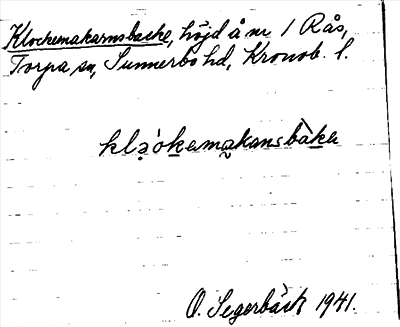 Klockemakarnsbacke, höjd å nr 1 Rås,
Torpa sn, Sunnerbo hd, Kronob. l.
klə̣̀okamakansbàka
O. Segerbäck 1941.